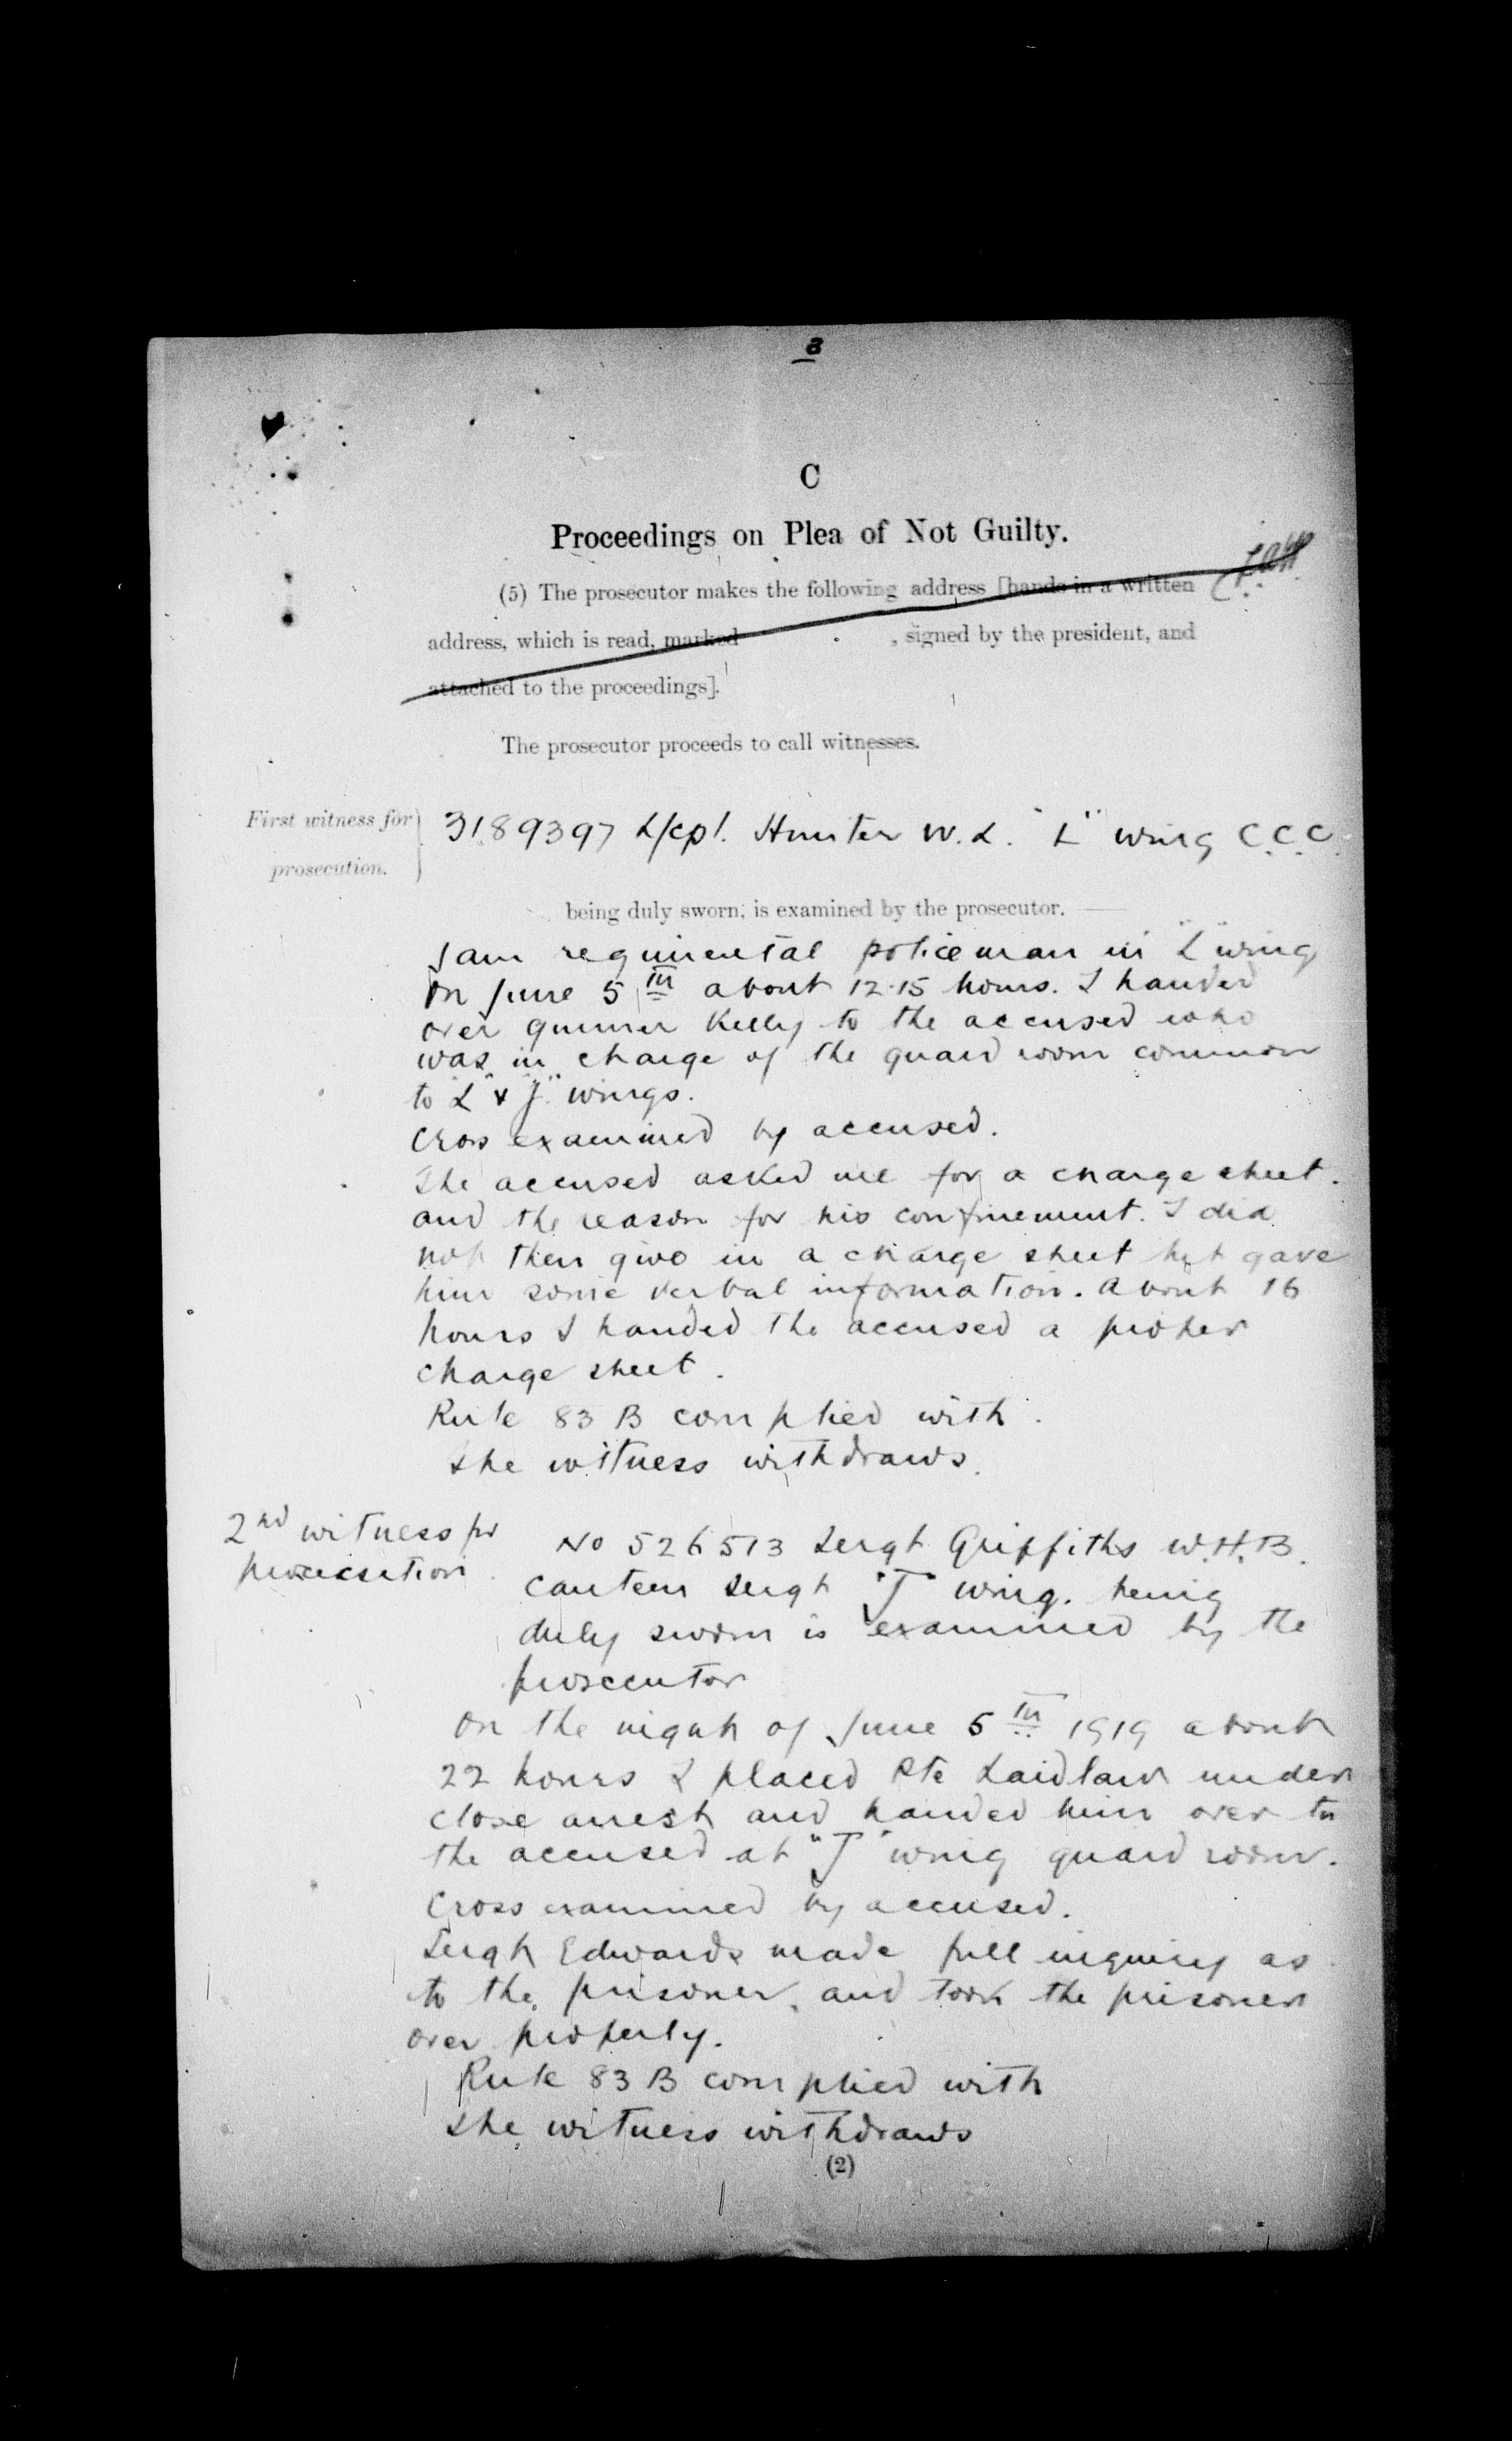 8
C
Proceedings on Plea of Not Guilty.
(5) The prosecutor makes the following address [hands in a written
address, which is read, marked , signed by the president, and
attached to the proceedings].
The prosecutor proceeds to call witnesses.
First witness for
prosecution.
3189397 L/cpl. Hunter W.L. "L" wing C.C.C.
being duly sworn, is examined by the prosecutor.
I am regimental policeman in "L" wing
On June 5th about 12.15 hours. I handed
over gunner Kelly to the accused who
was in charge of the guard room common
to "L" & "J" wings.
Cross examined by accused.
The accused asked me for a charge sheet.
and the reason for his confinement. I did
not then give in a charge sheet but gave
him some verbal information. About 16
hours I handed the accused a proper
charge sheet.
Rule 83 B complied with.
The witness withdraws.
2nd witness for
prosecution.
No 526513 Sergt Griffiths W.H.B.
Canteen Sergt "J" wing. being
duly sworn is examined by the
prosecutor
On the night of June 5th 1919 about
22 hours I placed Pte Laidlaw under
close arrest and handed him over to
the accused at "J" wing guard room.
Cross examined by accused.
Sergt Edwards made full inquiry as
to the prisoner, and took the prisoner
over properly.
Rule 83 B complied with
The witness withdraws
(2)